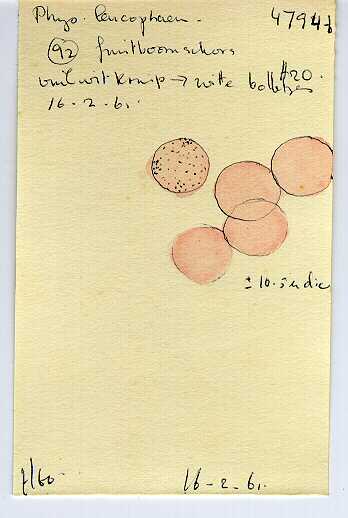 Physo. leucophaea - 47941
(92) fruitboomschors
vuilwit → witte bolletjes #20.
16 - 2 - 61.
± 10.
f/60 16 - 2 - 61